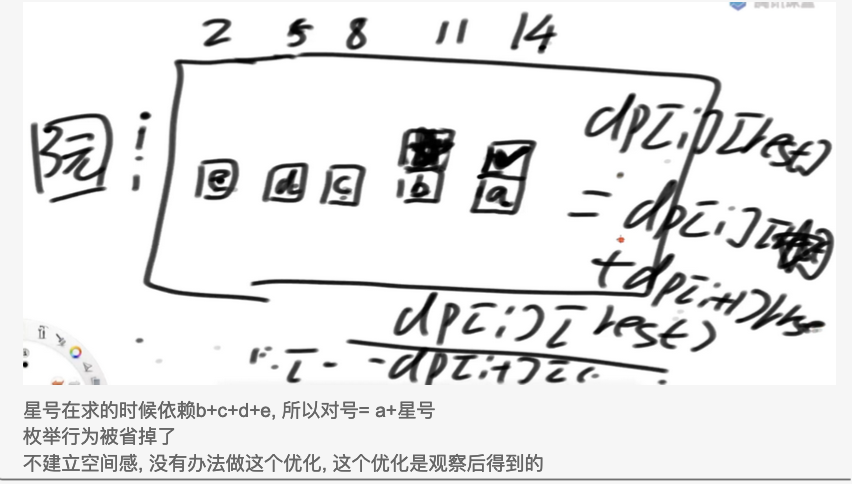 2 5 8 11 14
3元 i
dp[i][rest]
e d c b a
= dp[i][
+ dp[i+1][rest
dp[i][rest]
- dp[i+1][
星号在求的时候依赖b+c+d+e, 所以对号= a+星号
枚举行为被省掉了
不建立空间感, 没有办法做这个优化, 这个优化是观察后得到的